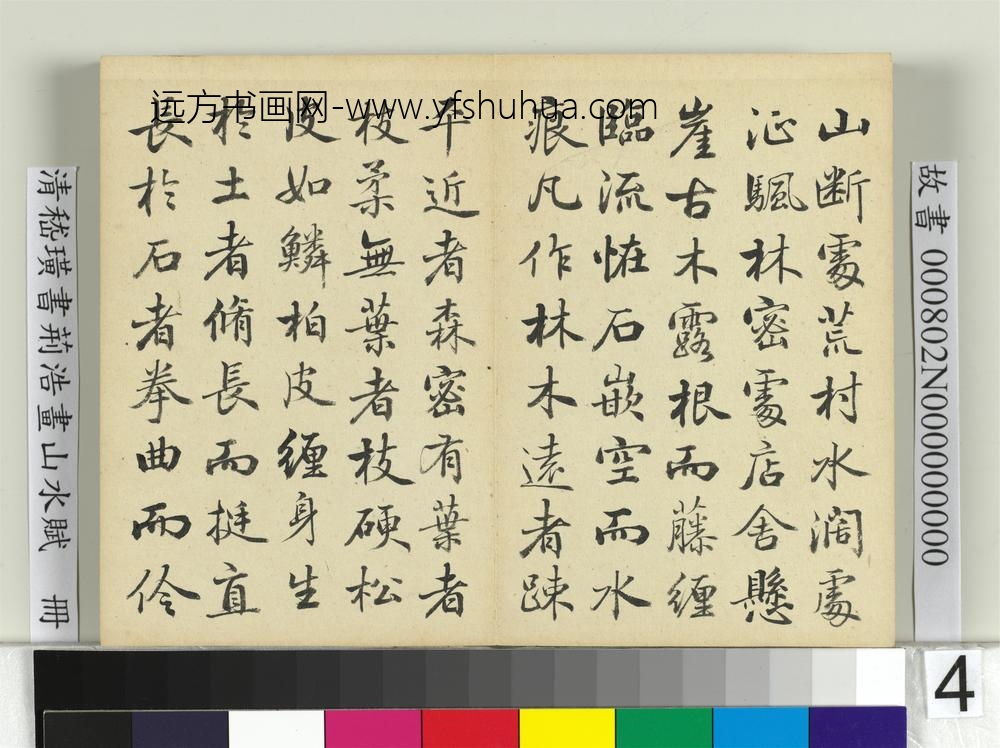 远方书画网-www.yfshuhua.com
山断處荒村水濶處
征颿林密處店舍懸
崖古木露根而藤纏
臨流恠石嵌空而水
痕凡作林木遠者疎
平近者森密有葉者
枝柔無葉者枝硬松
皮如鱗柏皮纏身生
於土者脩長而挺直
長於石者拳曲而伶
故書 000802N000000000
清嵇璜書荊浩畫山水賦 冊
4